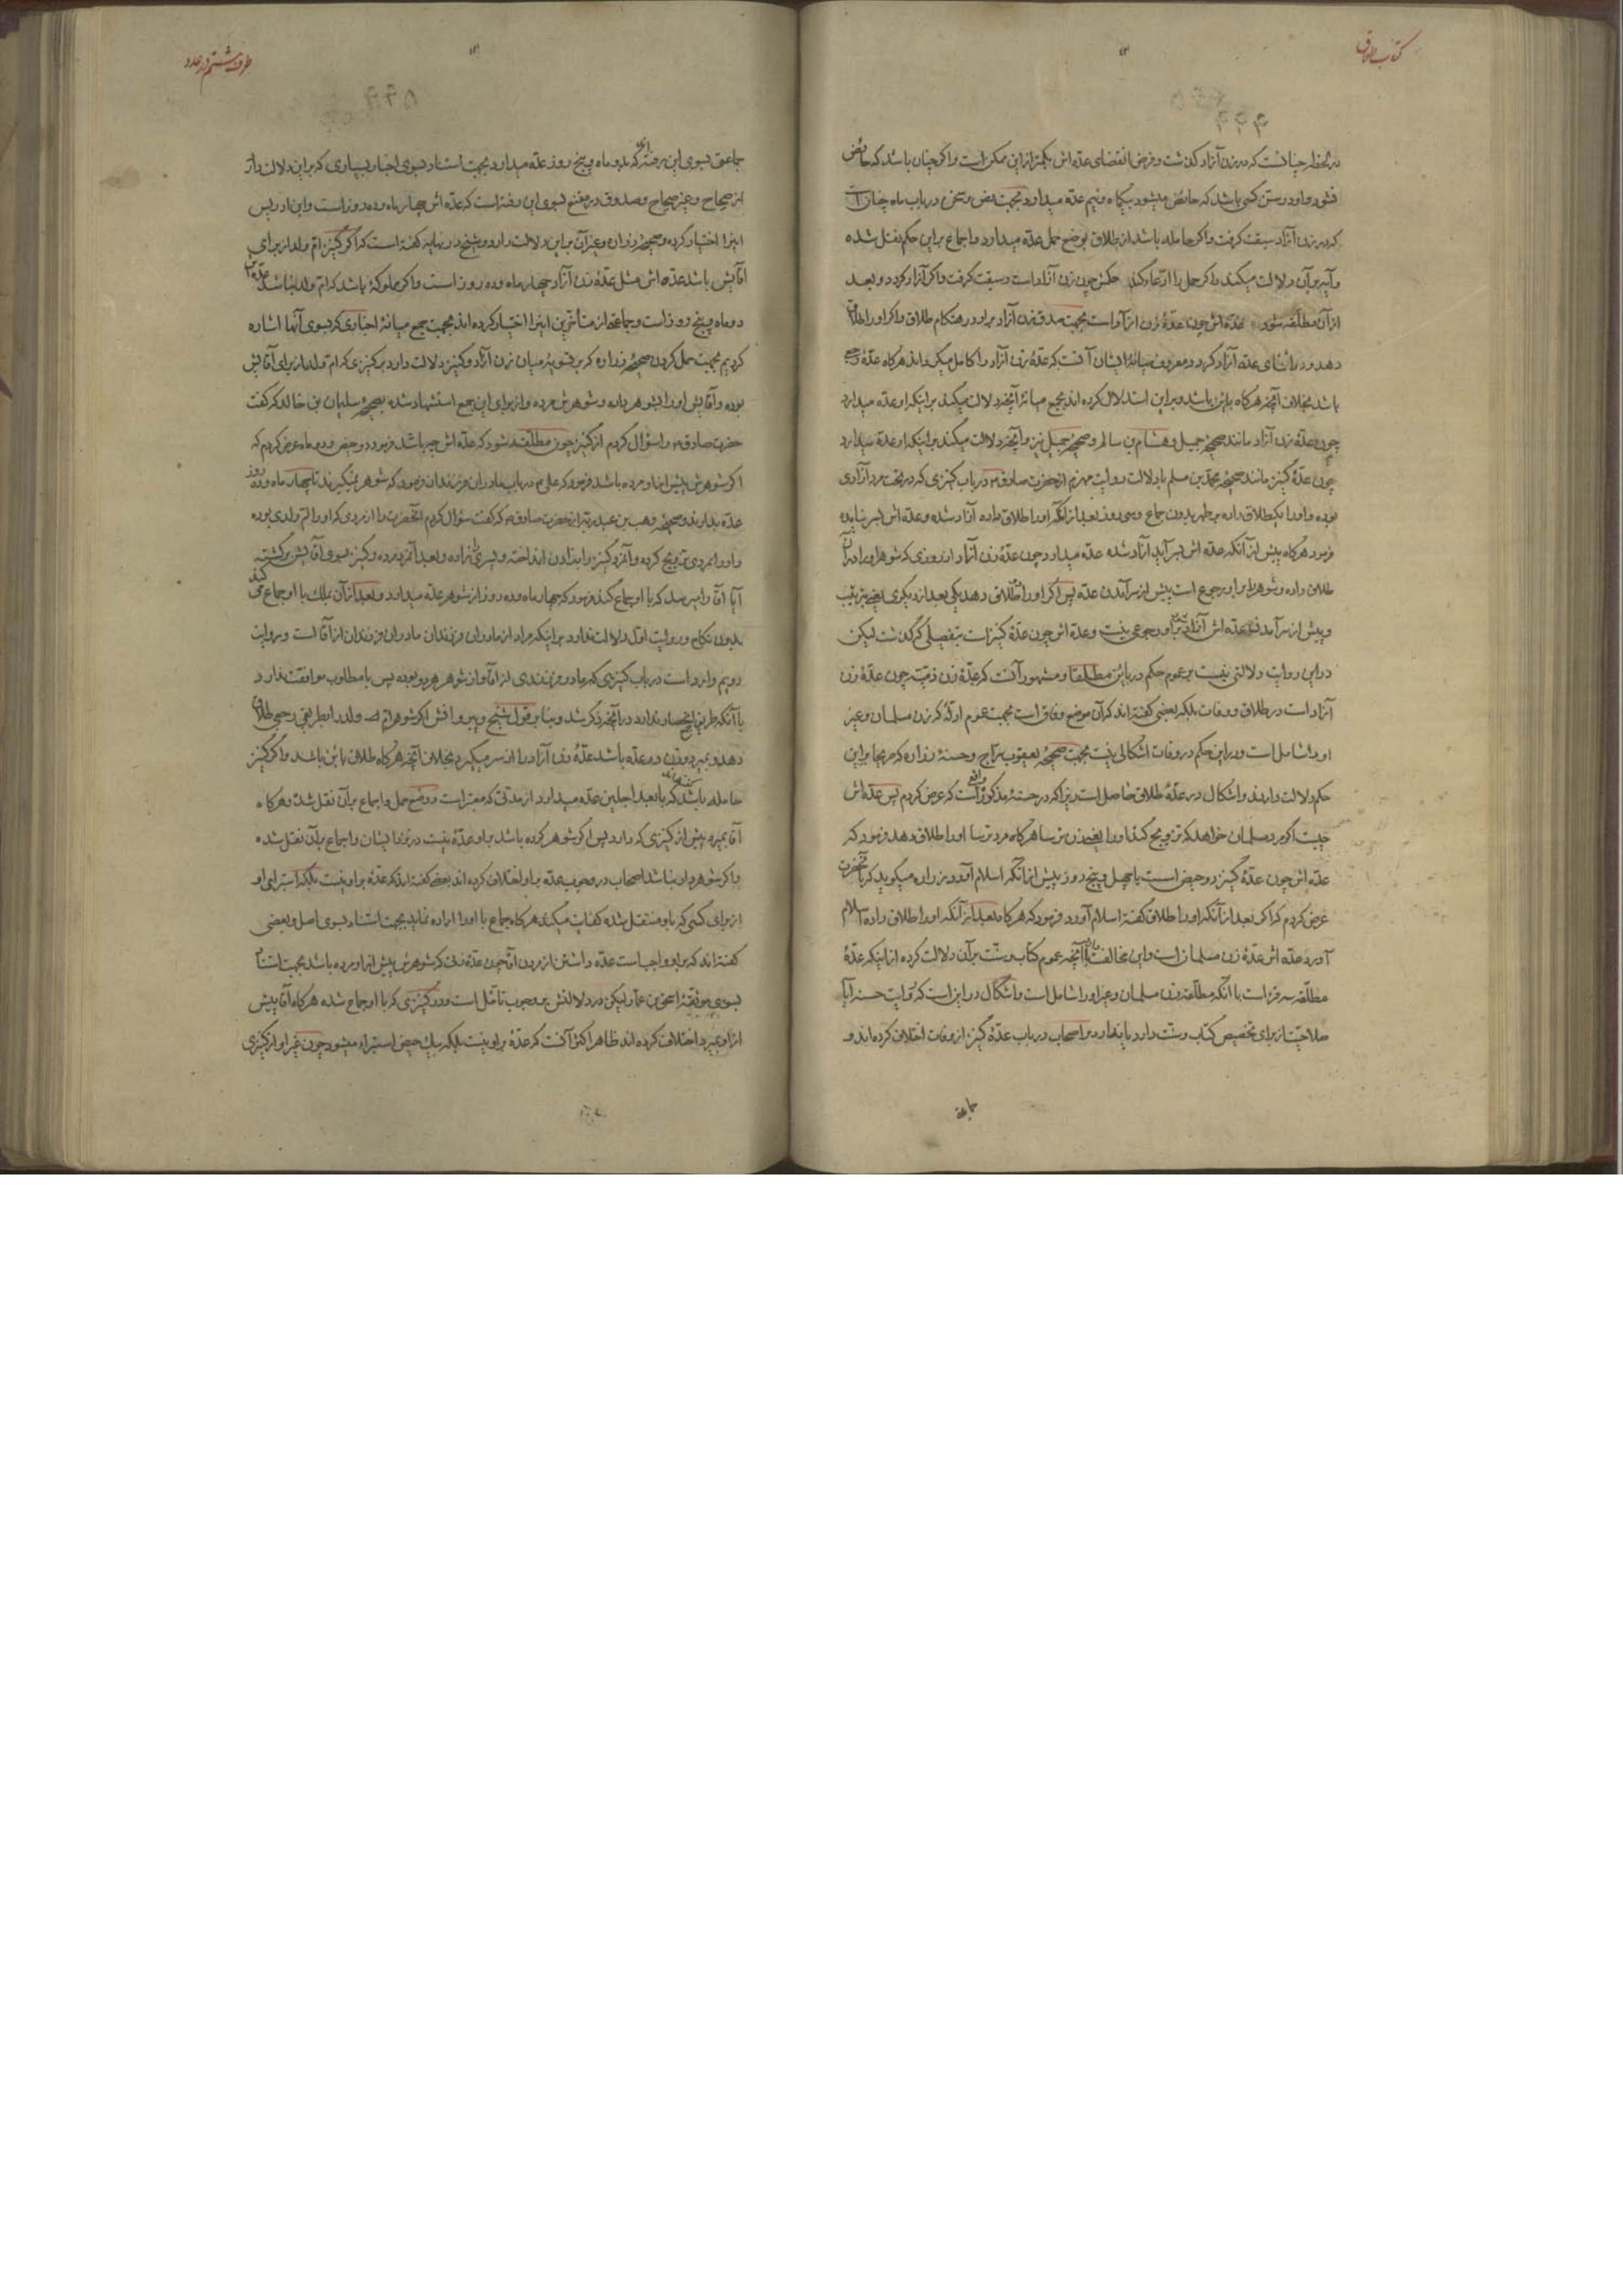 کتاب طلاق
در لحظه چنانست که در زن آزاد گذشت و فرض انقضای عده اش بکمتر از این ممکن است و اگر چنان باشد که حائض
نشود و او در سن کسی باشد که حائض میشود بیکماه و نیم عده میدارد بجهت نص و سخن در باب ماه چنان است
که در زن آزاد سبقت گرفت و اگر حامله باشد از طلاق بوضع حمل عده میدارد و اجماع بر این حکم نقل شده
و آیه بر آن دلالت میکند و اگر حمل را ادعا کند حکمش چون زن آزاد است و سبقت گرفت و اگر آزاد گردد و بعد
از آن مطلقه شود عده اش چون عدهٔ زن آزاد است بجهت صدق زن آزاد بر او در هنگام طلاق و اگر او را طلاق
دهد و در اثنای عده آزاد گردد معروف میانهٔ ایشان آنست که عدهٔ زن آزاد را کامل میگرداند هرگاه عدهٔ رجعی
باشد بخلاف آنچه هرگاه باین باشد و بر این استدلال کرده اند بجمع میانهٔ آنچه دلالت میکند بر اینکه او عده میدارد
چون عدهٔ زن آزاد مانند صحیحهٔ جمیل و هشام بن سالم و صحیحهٔ جمیل نیز و آنچه دلالت میکند بر اینکه او عده میدارد
چون عدهٔ کنیز مانند صحیحهٔ محمد بن مسلم با دلالت روایت مهزم از حضرت صادق در باب کنیزی که در تحت مرد آزادی
بوده و او را یک طلاق داده بر طهر بدون جماع و سی روز بعد از آنکه او را طلاق داده آزاد شده و عده اش بسر نیامده
فرمود هرگاه پیش از آنکه عده اش بسر آید آزاد شده عده میدارد چون عدهٔ زن آزاد از روزی که شوهر او را در آن
طلاق داده و شوهر را بر او رجوع است پیش از سر آمدن عده پس اگر او را طلاق دهد یکی بعد از دیگری یعنی بترتیب
و پیش از سر آمدن عده اش آزاد بر او رجوعی نیست و عده اش چون عدهٔ کنیز است بتفصیلی که گذشت لیکن
در این روایت دلالتی نیست بر عموم حکم در باین مطلقا و مشهور آنست که عدهٔ زن ذمیه چون عدهٔ زن
آزاد است در طلاق و وفات بلکه بعضی گفته اند که آن موضع وفاق است بجهت عموم ادله که زن مسلمان و غیر
او را شامل است و در این حکم در وفات اشکالی نیست بجهت صحیحهٔ یعقوب سراج و حسنهٔ زراره که صریحا بر این
حکم دلالت دارند و اشکال در عدهٔ طلاق حاصل است زیرا که در حسنهٔ مذکور واقع است که عرض کردم پس عده اش
چیست اگر مرد مسلمان خواهد که تزویج کند او را یعنی زن ترسا هرگاه مرد ترسا او را طلاق دهد فرمود که
عده اش چون عدهٔ کنیز دو حیض است یا چهل و پنج روز پیش از آنکه اسلام آورد زراره میگوید که با آنحضرت
عرض کردم که اگر بعد از آنکه او را طلاق گفته اسلام آورد فرمود که هرگاه بعد از آنکه او را طلاق داده اسلام
آورد عده اش عدهٔ زن مسلمان است و این مخالفت با آنچه عموم کتاب و سنت بر آن دلالت کرده از اینکه عدهٔ
مطلقه سه قرء است با آنکه مطلقه زن مسلمان و غیر او را شامل است و اشکال در این است که روایت حسنه آیا
صلاحیت از برای تخصیص کتاب و سنت دارد یا ندارد و اصحاب در باب عدهٔ کنیز از وفات اختلاف کرده اند و
جماعة
طرف ششم در عدد
جماعتی بسوی این رفته اند که بدو ماه و پنج روز عده میدارد بجهت استناد بسوی اخبار بسیاری که بر این دلالت دارد
از صحاح و غیر صحاح و صدوق در مقنع بسوی این رفته است که عده اش چهار ماه و ده روز است و ابن ادریس
اینرا اختیار کرده و صحیحهٔ زراره و غیر آن بر این دلالت دارد و شیخ در نهایه گفته است که اگر کنیز ام ولد از برای
آقایش باشد عده اش مثل عدهٔ زن آزاد چهار ماه و ده روز است و اگر مملوکهٔ باشد که ام ولد نباشد عده اش
دو ماه و پنج روز است و جماعتی از متأخرین اینرا اختیار کرده اند بجهت جمع میانهٔ اخباری که بسوی آنها اشاره
کردیم بجهت حمل کردن صحیحهٔ زراره که بر تسویه میان زن آزاد و کنیز دلالت دارد بر کنیزی که ام ولد از برای آقایش
بوده و آقایش او را بشوهر داده و شوهرش مرده و از برای این جمع استشهاد شده بصحیحهٔ سلیمان بن خالد که گفت
حضرت صادق را سؤال کردم از کنیز چون مطلقه شود که عده اش چه باشد فرمود دو حیض و دو ماه عرض کردم که
اگر شوهرش پیش از او مرده باشد فرمود که علی در باب مادران فرزندان فرمود که شوهر نمیگیرند تا چهار ماه و ده روز
عده بدارند و صحیحهٔ وهب بن عبد ربه از حضرت صادق که گفت سؤال کردم آنحضرت را از مردی که او را ام ولدی بوده
و او را بمردی تزویج کرده و آنمرد کنیز را بزادن انداخته و پسری زاده و بعد آنمرد مرده و کنیز بسوی آقایش برگشته
آیا آقا را میرسد که با او جماع کند فرمود که چهار ماه و ده روز از شوهر عده میدارد و بعد از آن بملک با او جماع میکند
بدون نکاح و روایت اول دلالت ندارد بر اینکه مراد از مادران فرزندان مادران فرزندان از آقا است و روایت
دویم وارد است در باب کنیزی که مادر فرزندی از آقا و از شوهر هر دو بوده پس با مطلوب موافقت ندارد
با آنکه طریق جمع انحصار ندارد در آنچه ذکر شد و بنا بر قول شیخ و پیروانش اگر شوهر ام ولد را بطریق رجعی طلاق
دهد و بمیرد و زن در عده باشد عدهٔ زن آزاد را از سر میگیرد بخلاف آنچه هرگاه طلاق باین باشد و اگر کنیز
حامله باشد گفته اند که با بعد اجلین عده میدارد از مدتی که معتبر است و وضع حمل و اجماع بر آن نقل شده و هرگاه
آقا بمیرد پیش از کنیزی که دارد پس اگر شوهر کرده باشد بر او عدهٔ نیست در نزد ایشان و اجماع بر آن نقل شده
و اگر شوهردار نباشد اصحاب در وجوب عده بر او اختلاف کرده اند بعضی گفته اند که عدهٔ بر او نیست بلکه استبرای او
از برای کسی که باو منتقل شده کفایت میکند هرگاه جماع با او را اراده نماید بجهت استناد بسوی اصل و بعضی
گفته اند که بر او واجبست عده داشتن از مردن آقا چون عدهٔ زنی که شوهرش پیش از او مرده باشد بجهت استناد
بسوی موثقهٔ اسحق بن عمار لیکن در دلالتش بر وجوب تأمل است و در کنیزی که با او جماع شده هرگاه آقا پیش
از او بمیرد اختلاف کرده اند ظاهر اکثر آنست که عدهٔ بر او نیست بلکه بیک حیض استبراء میشود چون غیر او از کنیزی